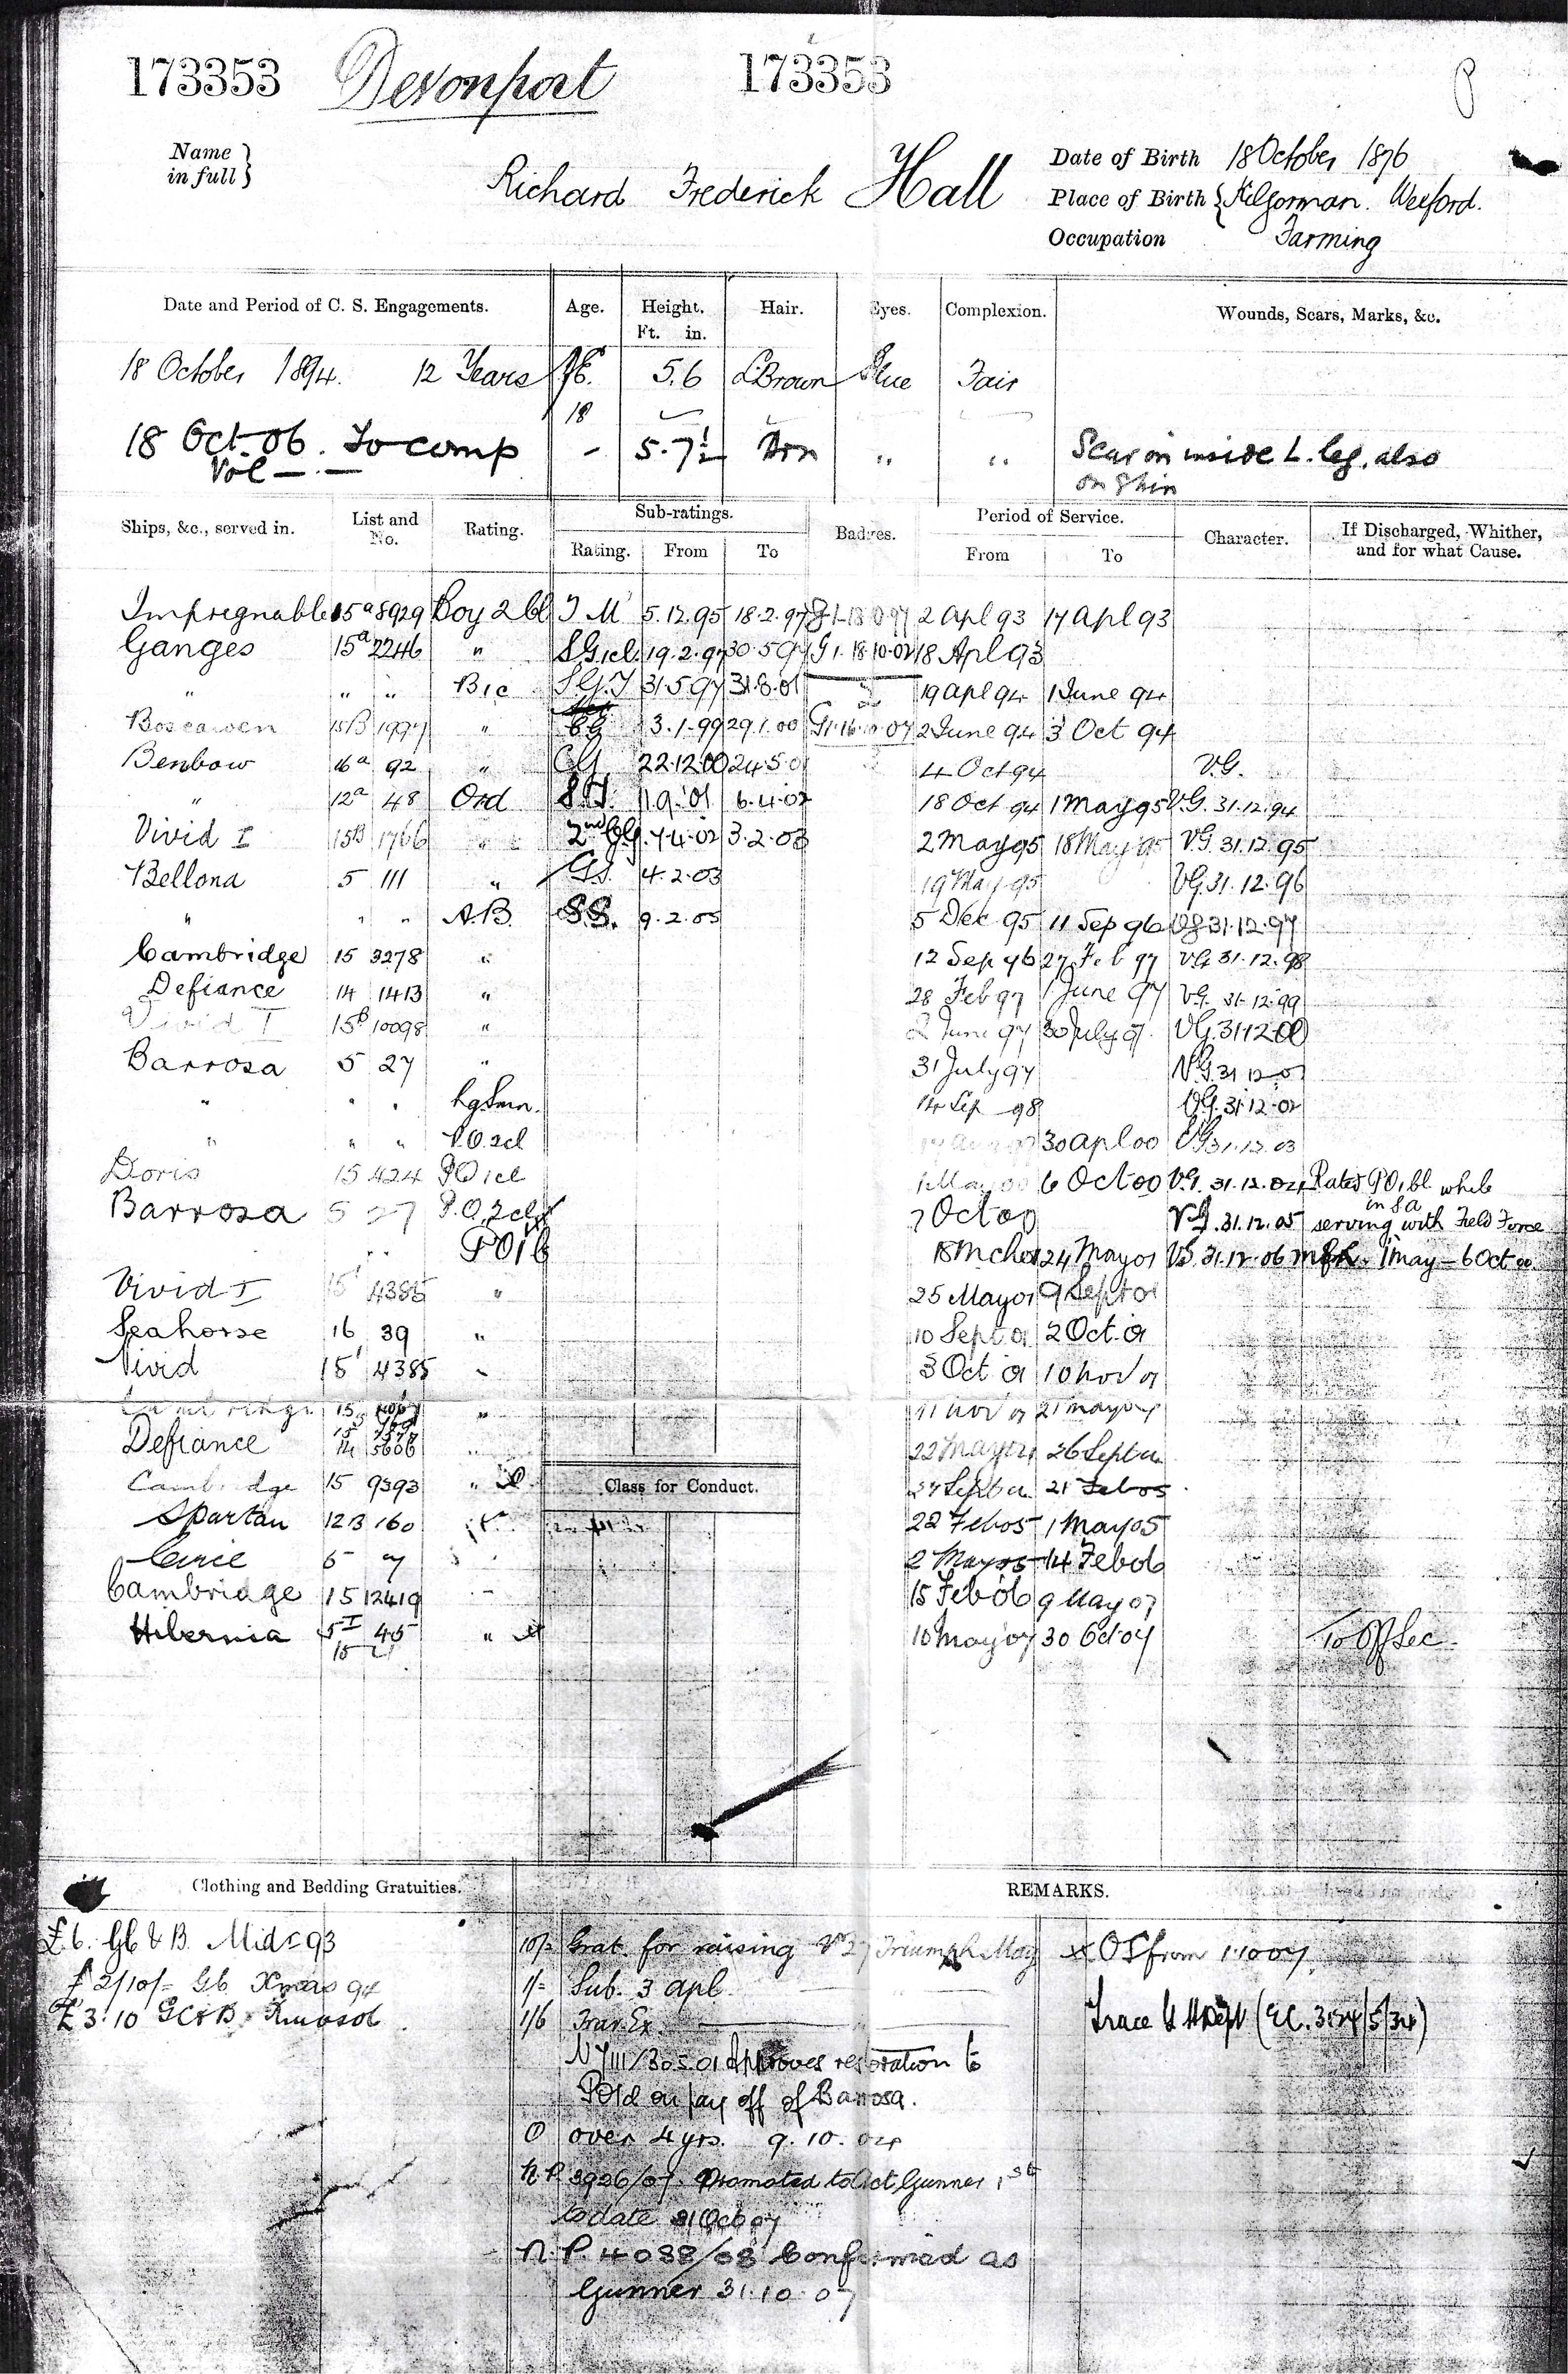 173353 Devonport 173353
Name in full } Richard Frederick Hall
Date of Birth 18 October 1876
Place of Birth { Kilgorman. Wexford.
Occupation Farming
Date and Period of C. S. Engagements. Age. Height. Ft. in. Hair. Eyes. Complexion. Wounds, Scars, Marks, &c.
18 October 1894. 12 Years 5.6 L.Brown Blue Fair
18
18 Oct. 06. To comp - 5.7½ Brn " " Scar on inside L. leg, also
Vol on shin
Ships, &c., served in. List and No. Rating. Sub-ratings. Badges. Period of Service. Character. If Discharged, Whither, and for what Cause.
Rating. From To From To
Impregnable 15a 8929 Boy 2 Cl T M 5.12.95 18.2.97 2 Apl 93 17 Apl 93
Ganges 15a 2246 " S.G.1cl 19.2.97 30.5.97 G1. 18.10.02 18 Apl 93
" " " B1c S.G.T 31.5.97 31.8.01 19 Apl 94 1 June 94
Boscawen 15B 1997 " 3.1.99 29.1.00 G1. 16.10.07 2 June 94 3 Oct 94
Benbow 16a 92 " CG 22.12.00 24.5.01 4 Oct 94 V.G.
" 12a 48 Ord S.T. 1.9.01 6.4.02 18 Oct 94 1 May 95 V.G. 31.12.94
Vivid I 15B 1766 " 2nd G.G. 7.4.02 3.2.03 2 May 95 18 May 95 V.G. 31.12.95
Bellona 5 111 " G.I. 4.2.03 19 May 95 V.G. 31.12.96
" " " A.B. S.S. 9.2.05 5 Dec 95 11 Sep 96 V.G. 31.12.97
Cambridge 15 3278 " 12 Sep 96 27 Feb 97 V.G. 31.12.98
Defiance 14 1413 " 28 Feb 97 1 June 97 V.G. 31.12.99
Vivid I 15B 10098 " 2 June 97 30 July 97 V.G. 31.12.00
Barrosa 5 27 " 31 July 97 V.G. 31.12.01
" " " Lg Smn. 14 Sep 98 V.G. 31.12.02
" " " P.O.2cl 30 Apl 00 V.G. 31.12.03
Doris 15 424 P.O 1cl 1 May 00 6 Oct 00 V.G. 31.12.04 Rated P.O.1Cl. while
Barrosa 5 27 P.O.2cl 7 Oct 00 V.G. 31.12.05 in S.A serving with Field Force
" " P.O.1c 24 May 01 V.G. 31.12.06 1 May - 6 Oct 00.
Vivid I 15 4385 " 25 May 01 9 Sept 01
Seahorse 16 39 " 10 Sept 01 2 Oct. 01
Vivid 15 4385 " 3 Oct 01 10 Nov 01
Cambridge 15 " 11 Nov 01
Defiance 14 5606 " 26 Sept
Cambridge 15 9393 " 21 Feb 05
Class for Conduct.
Spartan 12B 160 22 Feb 05 1 May 05
5 7 2 May 05 14 Feb 06
Cambridge 15 12419 15 Feb 06 9 May 07
Hibernia 5 I 45 " 10 May 07 30 Oct 07 To Off Sec.
15
Clothing and Bedding Gratuities. REMARKS.
£6. Gb & B. Mids 93
£2/10/= Gb Xmas 94
£3.10
10/= Grat. for raising Triumph May
1/= Sub. 3 Apl.
1/6 Trav. Ex.
approves restoration to
on pay off of Barrosa.
O over 4 yrs. 9.10.04
N.P. 3926/07. Promoted to Act. Gunner
to date 31 Oct 07
N.P. 4038/08 Confirmed as
Gunner 31.10.07
from 1.10.07.
Trace